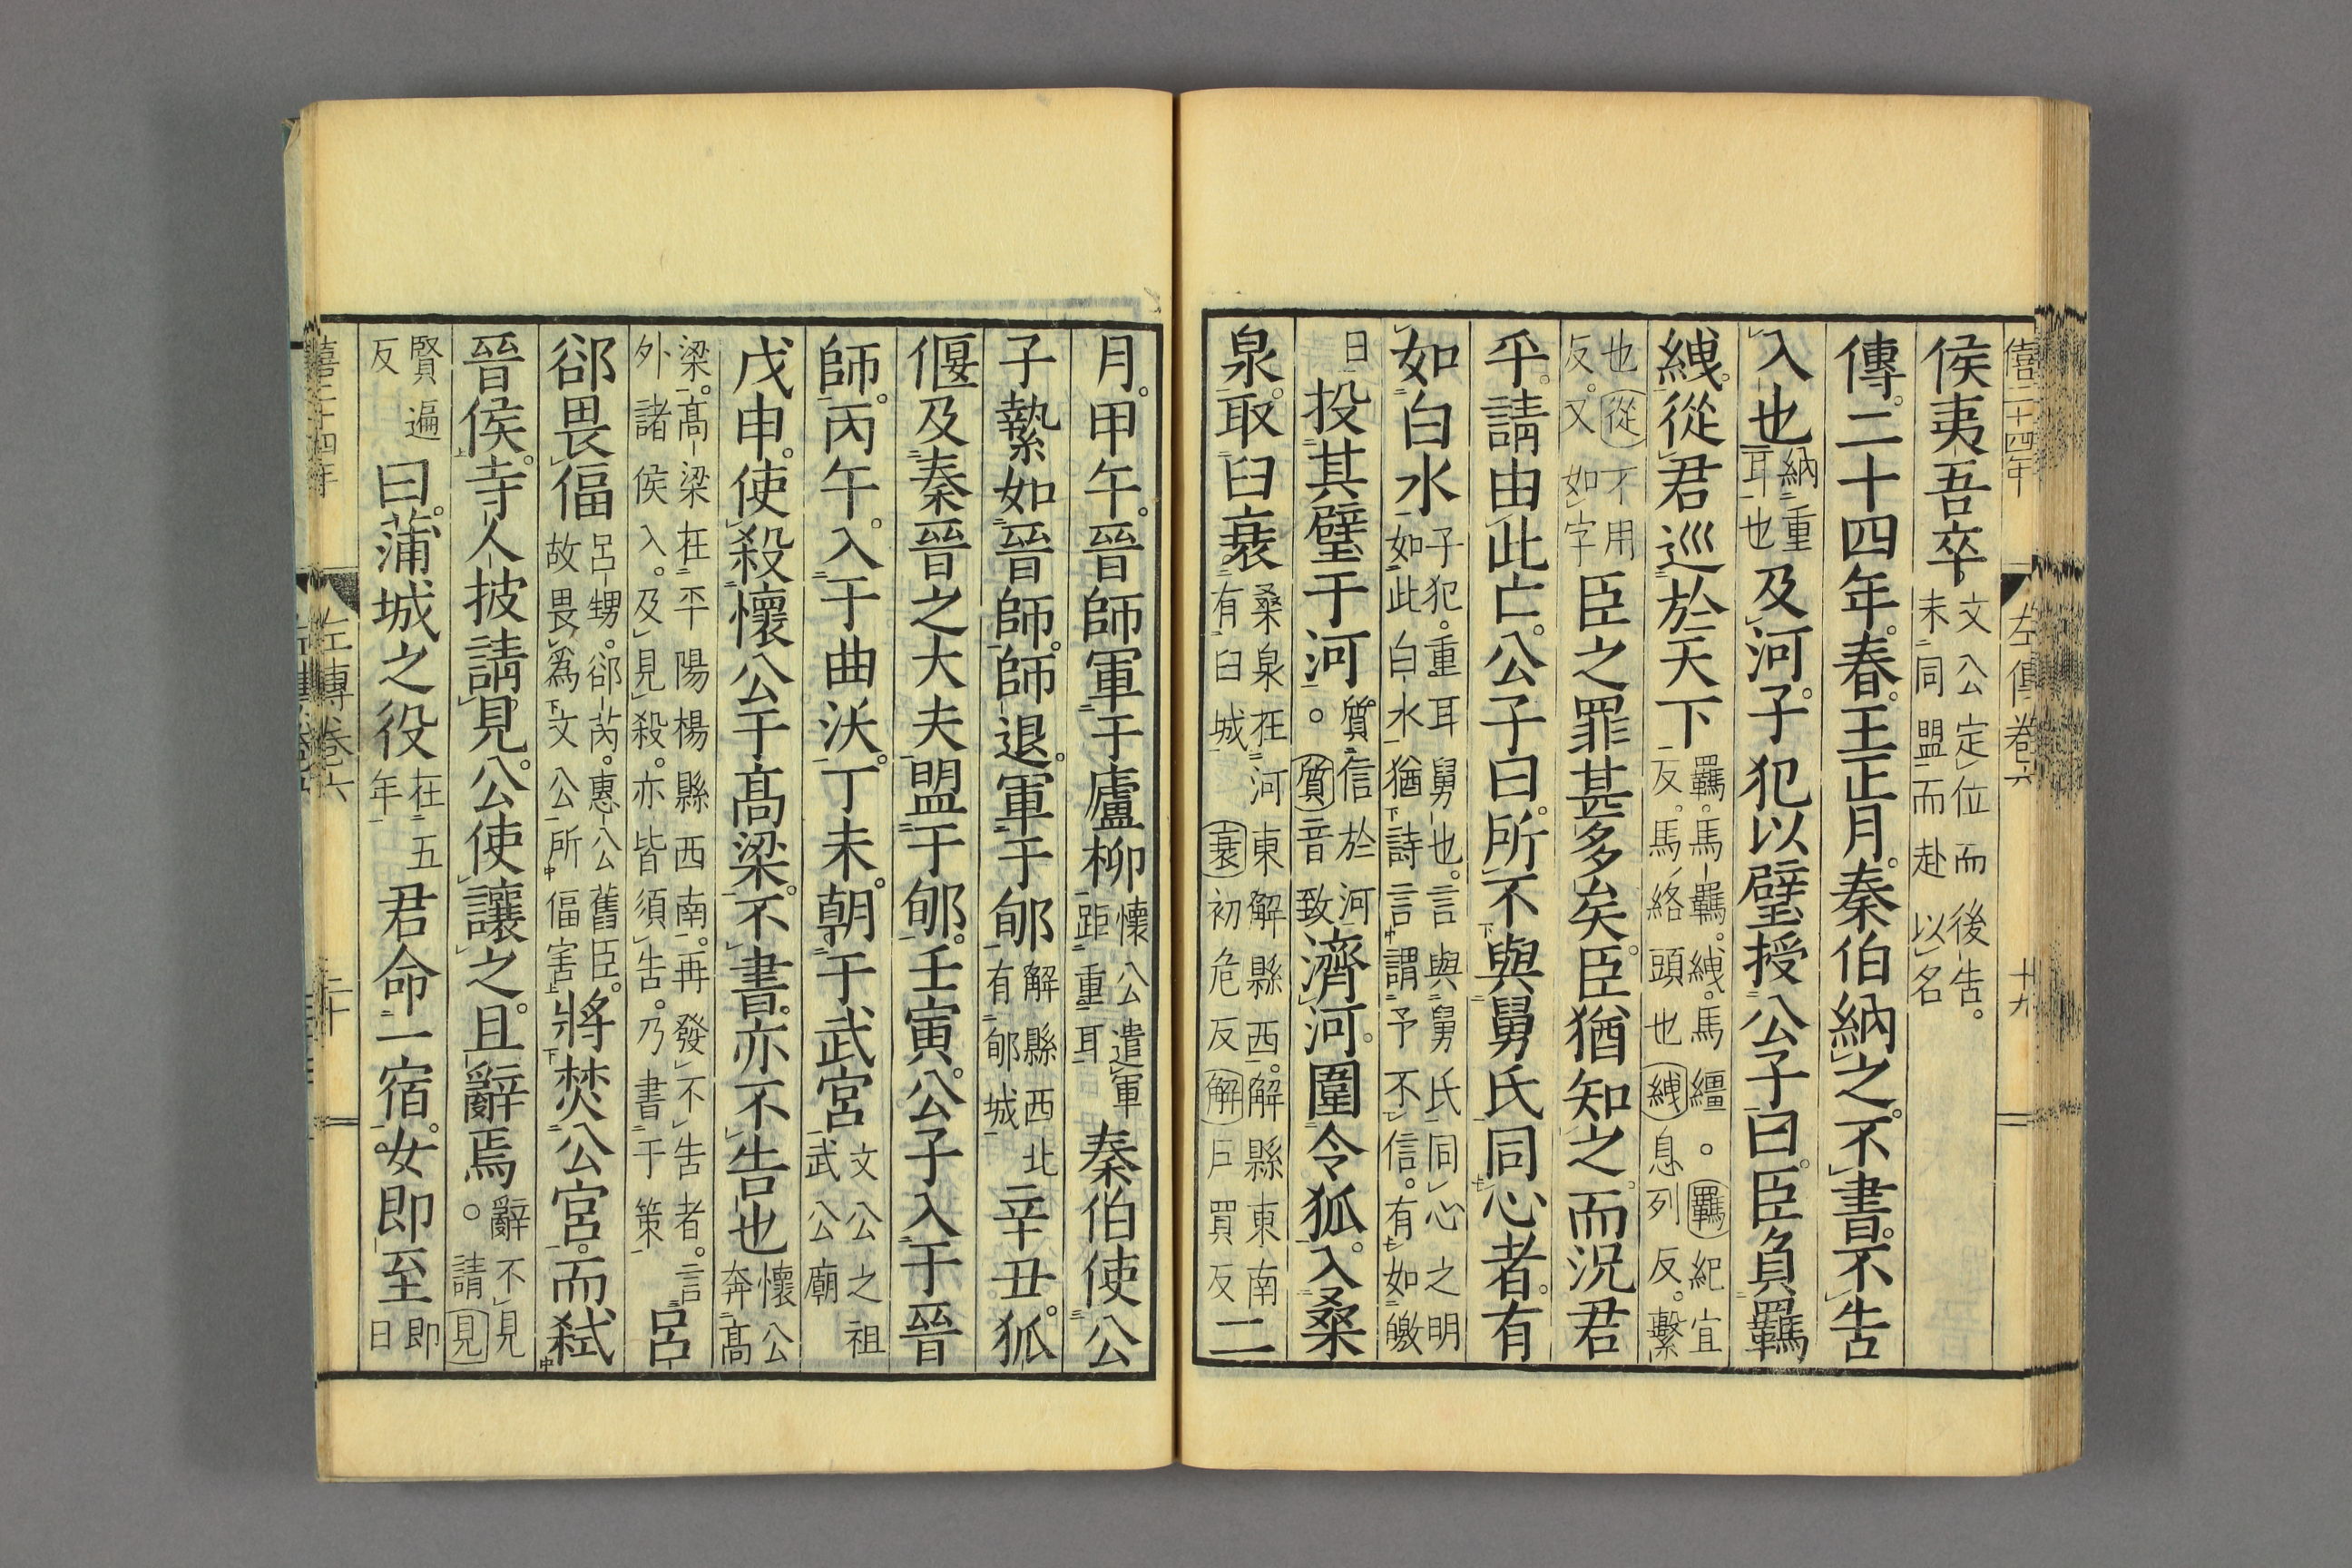 僖二十四年 左傳卷六 十九
侯夷吾卒文公定位而後告。未同盟而赴以名
傳。二十四年。春。王正月。秦伯納之。不書。不告
入也納重耳也及河。子犯以璧授公子曰。臣負羈
絏。從君巡於天下羈。馬羈。絏。馬繮。羈紀宜反。馬絡頭也絏息列反。繫
也從才用反。又如字臣之罪甚多矣。臣猶知之。而況君
乎。請由此亡。公子曰。所不與舅氏同心者。有
如白水子犯。重耳舅也。言與舅氏同心之明如此白水猶詩言謂予不信。有如皦
日投其璧于河。質信於河質音致濟河。圍令狐。入桑
泉。取臼衰桑泉在河東解縣西。解縣東南有臼城衰初危反解戶買反二
月。甲午。晉師軍于廬柳懷公遣軍距重耳秦伯使公
子縶如晉師。師退。軍于郇解縣西北有郇城辛丑。狐
偃及秦晉之大夫盟于郇。壬寅。公子入于晉
師。丙午。入于曲沃。丁未。朝于武宮文公之祖武公廟
戊申。使殺懷公于高梁。不書。亦不告也懷公奔高
梁。高梁在平陽楊縣西南。再發不告者。言外諸侯入。及見殺。亦皆須告。乃書于策呂
郤畏偪呂甥。郤芮。惠公舊臣。故畏爲文公所偪害將焚公宮。而弒
晉侯。寺人披請見。公使讓之。且辭焉辭不見。請見
賢遍反曰。蒲城之役在五年君命一宿。女即至即日
左傳卷六 二十